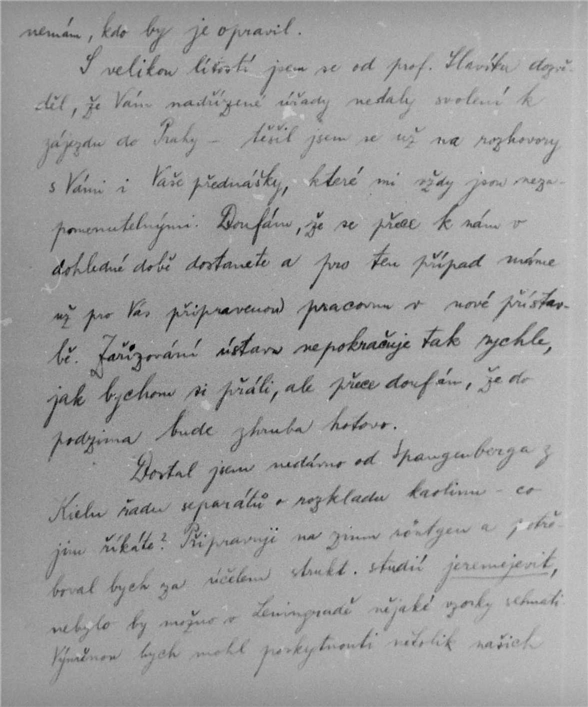 nemám, kdo by je opravil.
S velikou lítostí jsem se od prof. Slavíka dozvě-
děl, že Vám nadřízené úřady nedaly svolení k
zájezdu do Prahy – těšil jsem se už na rozhovory
s Vámi i Vaše přednášky, které mi vždy jsou neza-
pomenutelnými. Doufám, že se přece k nám v
dohledné době dostanete a pro ten případ máme
už pro Vás připravenou pracovnu v nové přístav-
bě. Zařizování ústavu nepokračuje tak rychle,
jak bychom si přáli, ale přece doufám, že do
podzima bude zhruba hotovo.
Dostal jsem nedávno od Spangenberga z
Kielu řadu separátů o rozkladu kaolinu – co
jim říkáte? Připravuji na zimu röntgen a potře-
boval bych za účelem strukt. studií jeremejevit,
nebylo by možno v Leningradě nějaké vzorky sehnati.
Výměnou bych mohl poskytnouti několik našich